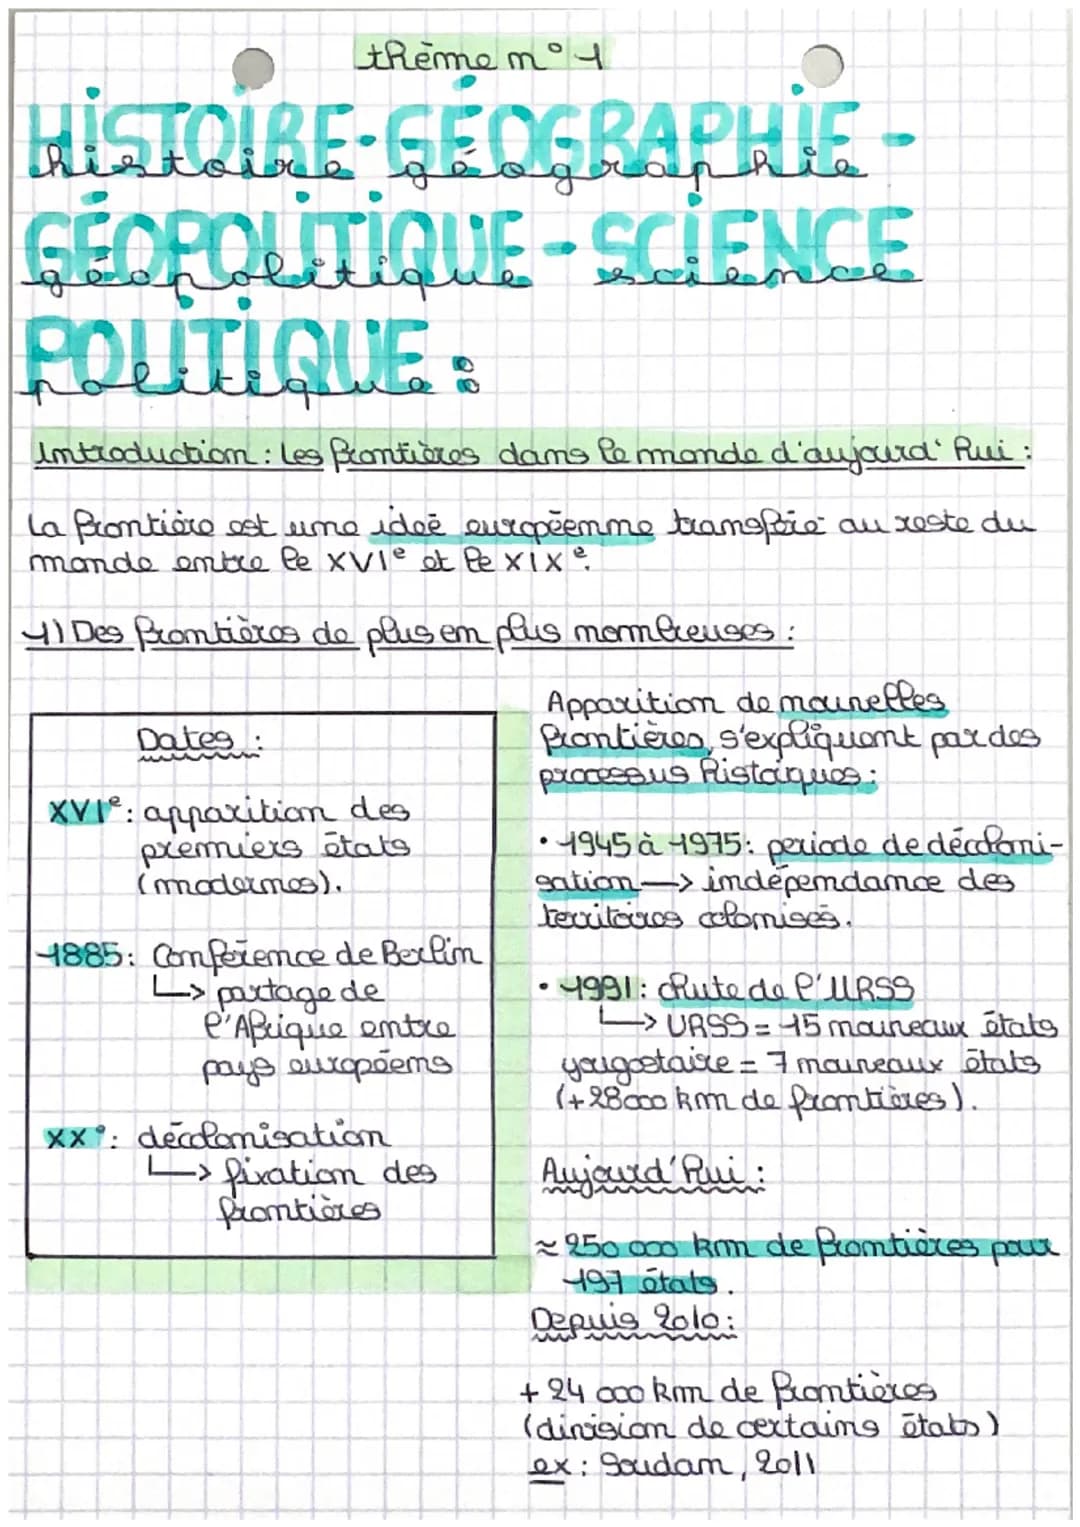 thème n°1
HISTOIRE-GÉOGRAPHIE -
histoire géographie
GÉOPOLITIQUE - SCIENCE
géopolitique science
POLITIQUE :
politique
Introduction : Les frontières dans le monde d'aujourd'hui :
La frontière est une ideé européenne transférée au reste du
monde entre le XVIe et le XIXe.
1) Des frontières de plus en plus nombreuses :
Dates :
XVIe : apparition des
premiers états
(modernes).
1885 : Conférence de Berlin
↳ partage de
l'Afrique entre
pays européens
XXe : décolonisation
↳ fixation des
frontières
Apparition de nouvelles
frontières, s'expliquant par des
processus historiques :
• 1945 à 1975 : periode de décoloni-
sation → indépendance des
territoires colonisés.
• 1991 : chute de l'URSS
↳ URSS = 15 nouveaux états
yougoslavie = 7 nouveaux états
(+28000 km de frontières).
Aujourd'hui :
≈ 250 000 km de frontières pour
197 états.
Depuis 2010 :
+ 24 000 km de frontières
(division de certains états)
ex : Soudan, 2011